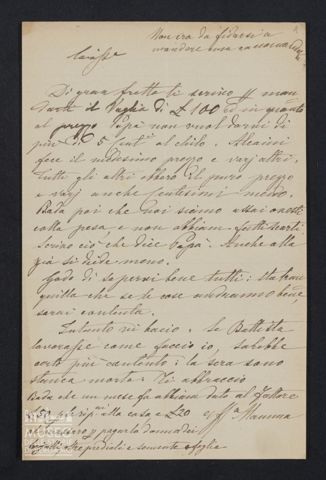 Non era da fidarsi a
mandare una raccomandata
Cariss.
Di gran fretta ti scrivo per man
darti il Vaglia di £ 100 ed in quanto
al prezzo Papà non vuol darmi di
più di 5 cent al chilo. Alcuni
fece il medesimo prezzo e varj altri.
Tutti gli altri ebbero il puro prezzo
e varj anche centesimi meno.
Bada poi che noi siamo assai onesti
colla pesa, e non abbiam fatti scarti
Scrivo ciò che dice Papà. Anche alla
già si diede meno.
Godo di sapervi bene tutti: sta tran
quilla che se le cose andranno bene,
sarai contenta.
Intanto un bacio. Se Battista
lavorasse come faccio io, sarebbe
certo più contento: la sera sono
stanca morta. Ti abbraccio
Bada che un mese fa abbiam dato al Fattore
£50 per alla casa e £20 Mamma
per pagarlo
prediali e semente foglia
MUSEUM